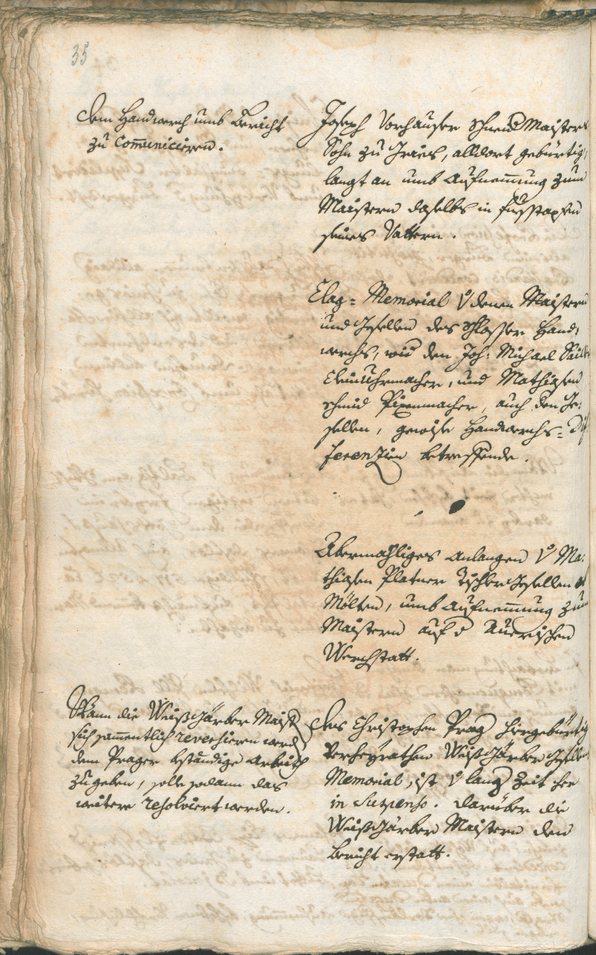 35
Dem Handwerch umb Bericht
zu Com̅uniciern.
Joseph Vorhauser Schneid Maisters
Sohn zu Jenesien, alldort gebürtig,
langt an umb Aufnem̅ung zum
Maistern daselbs in Fusstapfen
seines Vattern.
Clag=Memorial V denen Maistern
und Gesellen des Schlosser Hand,
werchs, wid den Joh: Michael
Clainuhrmacher, und Mathiasen
Schmid Pixenmacher, auch den Ge,
sellen, gewise Handwerchs=Dif
ferenzien betreffende.
Abermahliges Anlangen V Ma,
thiasen Platner Tischler Gesellen
Mölten, umb Aufnem̅ung zum
Maistern auf d Aurischen
Werchstatt.
Wann die Weisgärber Maist
sich sammentlich reversieren werd
dem Prager bständige Arbeith
zugeben, solle sodann das
weitere resolviert werden.
Des Christophen Prag hirgebürtig
verheyrathen Weisgärber Gesellen
Memorial, ist V lang Zeit her
in Suspenso. Darüber die
Weisgärber Maistern den
Bericht erstatt.